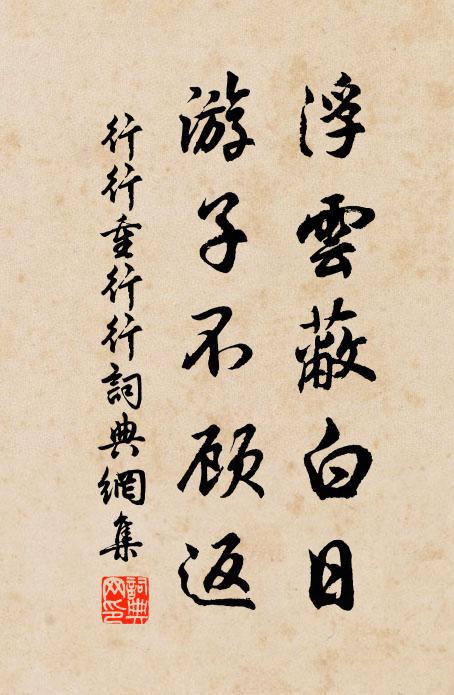 浮雲蔽白日
游子不顧返
行行重行行詞典網集
詞典网印